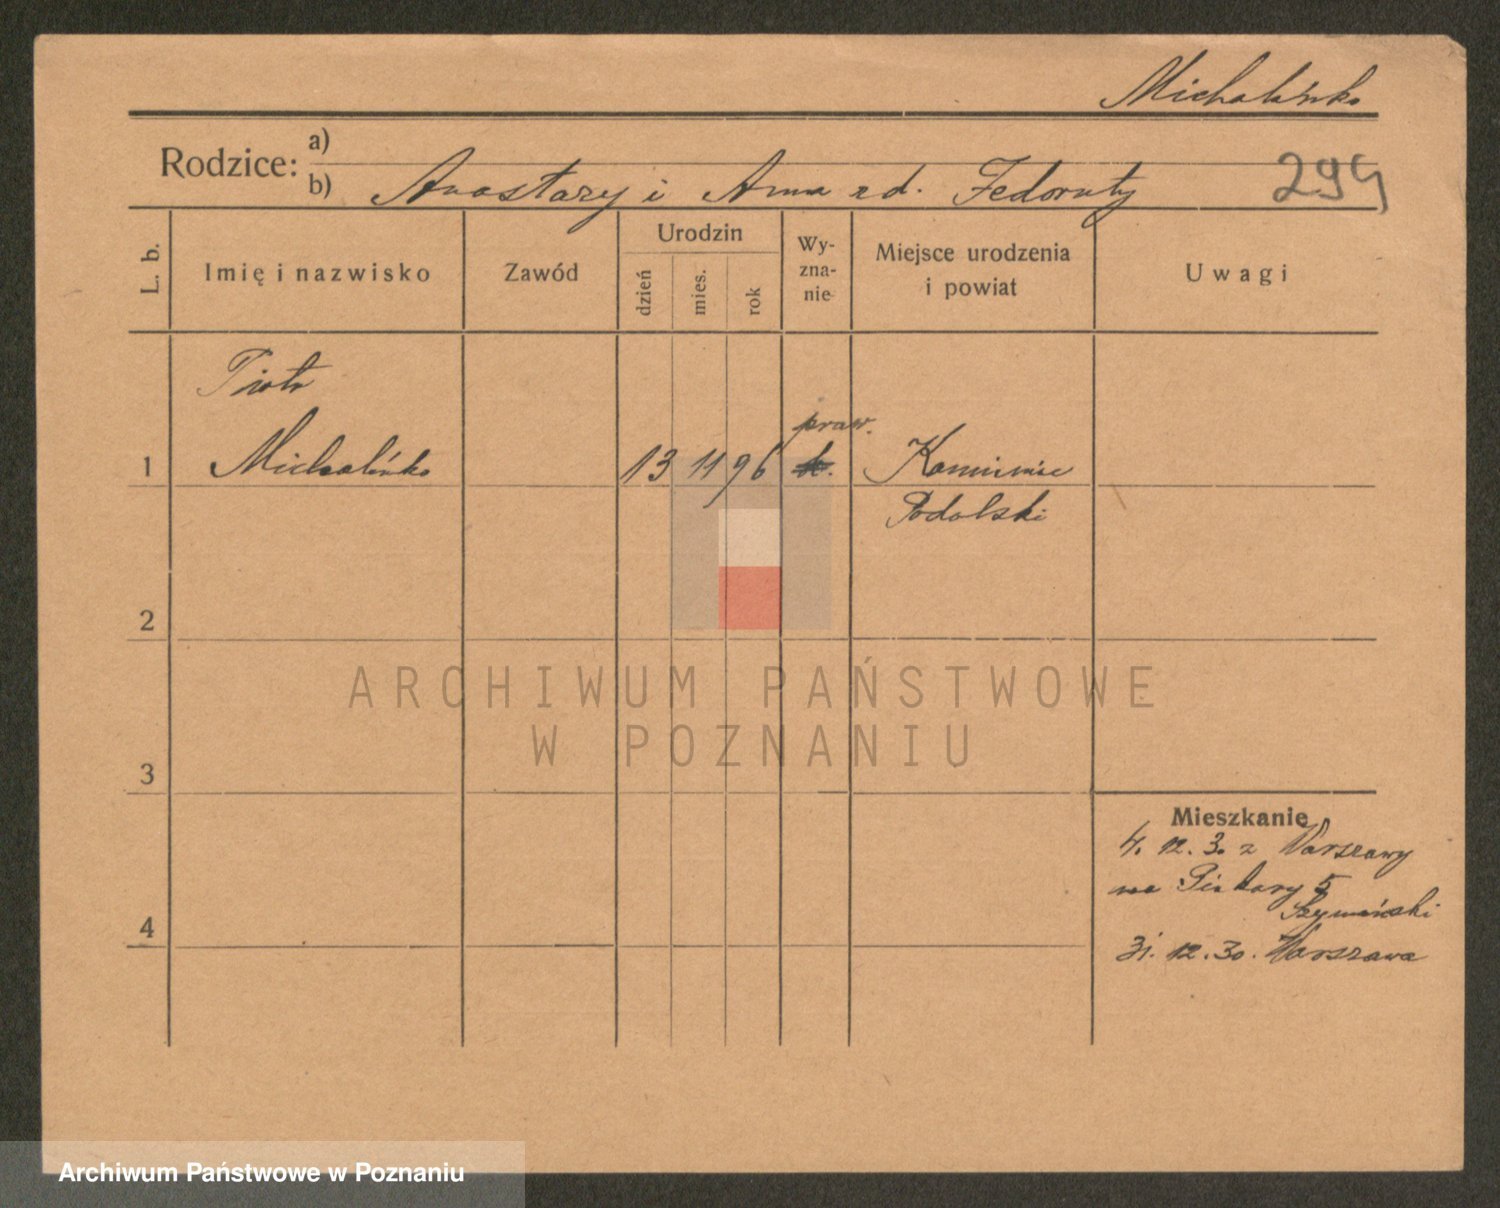 Michalińko
Rodzice: a)
b) Anastazy i Anna zd. Fedoruty
294
L. b.
Imię i nazwisko
Zawód
Urodzin
dzień
mies.
rok
Wy-
zna-
nie
Miejsce urodzenia
i powiat
Uwagi
Piotr
praw.
1 Michalińko 13 11 96 Kamieniec
Podolski
2
3
4
Mieszkanie
4. 12. 3. z Warszawy
na Piekary 5
Szymański
31. 12. 30. Warszawa
ARCHIWUM PAŃSTWOWE
W POZNANIU
Archiwum Państwowe w Poznaniu